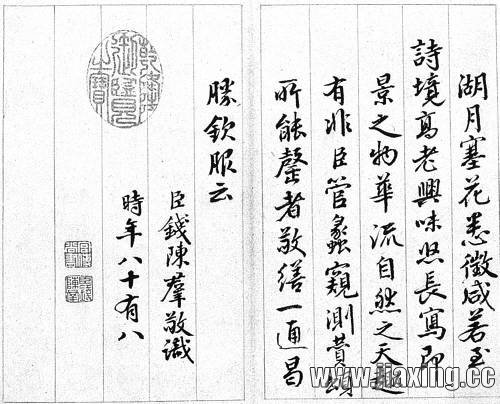 湖月塞花悉徵咸若至
詩境高老興味悠長寫即
景之物華流自然之天趣
有非臣管蠡窺測贊頌
所能罄者敬繕一通曷
勝欽服云
臣錢陳羣敬識
時年八十有八
乾隆御覽之寶
www.jiaxing.cc